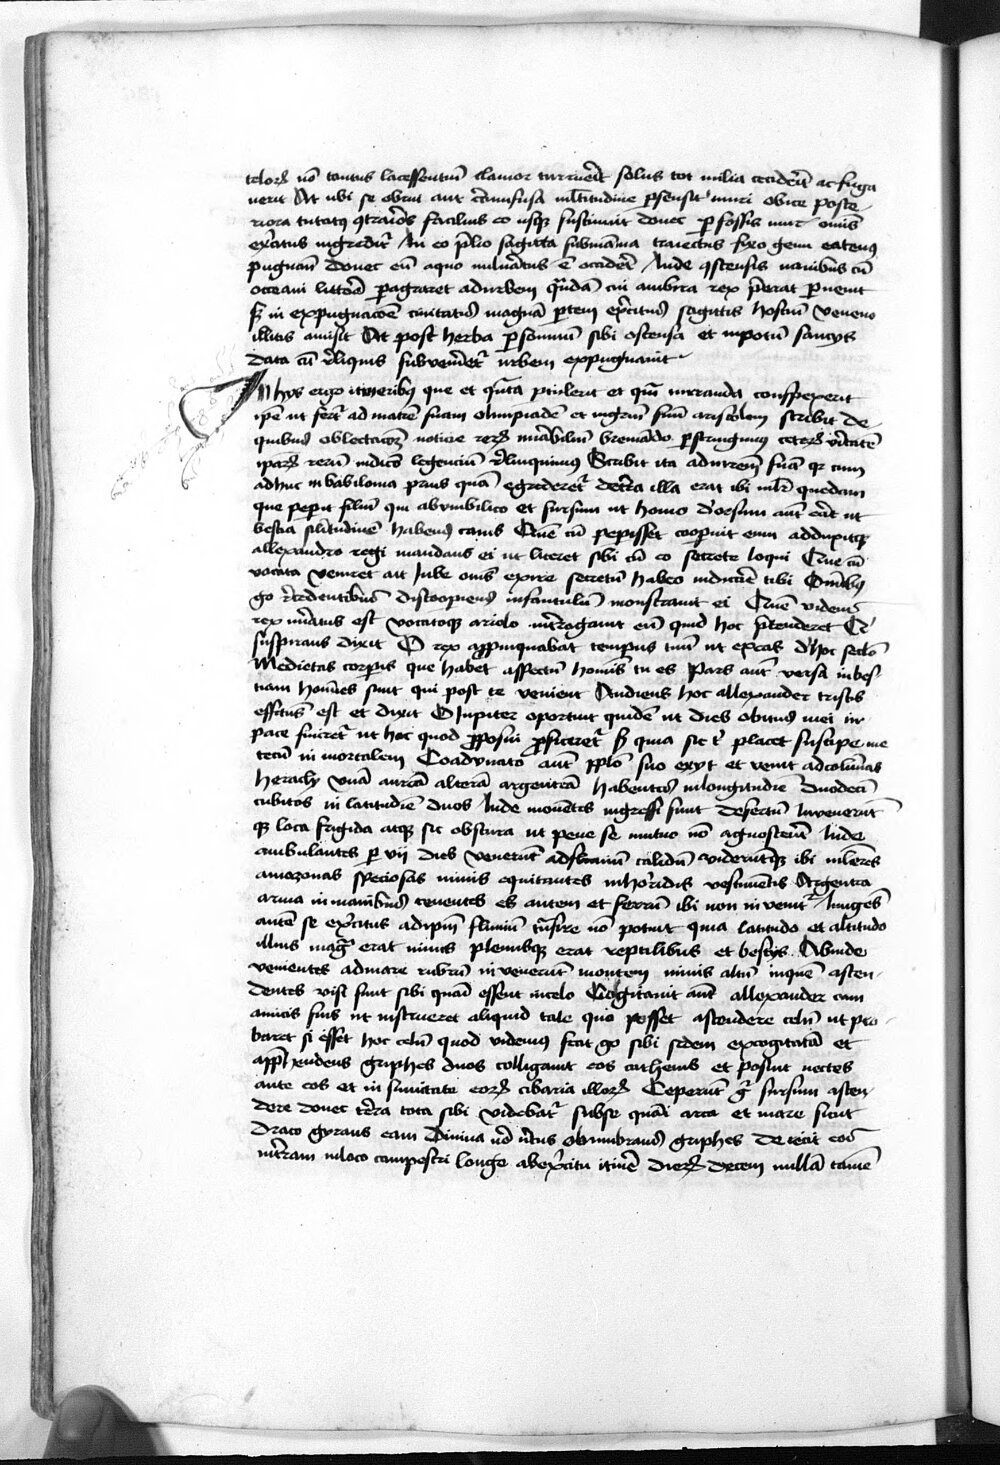 teloꝝ nō tantus lacessentiū clamor turruerīt solus tot milia cecidērīt ac fuga
uerit At ubi se obrui aut circūfusa mltitudine p̄sensit muri obice poste
riora tutatus ꝯtrarios facilius eo usqꝫ sustinuit donec ꝑfossis muris omīs
exercitus ingreditr̄ In eo p̄lio sagitta sub mamma traiectus fixo genu eatenus
pugnauit donec eū a quo uulnatus ē occideret Inde ꝯscensis nauibus cū
oceani littora ꝑagraret ad urbem quādā cui ambira rex p̄erat ꝑuenit
sꝫ in expugnacōe ciuitatis magnā ꝑtem exercitus sagittis hostiū veneno
illitis amisit At post herba ꝑ sommū sibi ostensa et in potum saucys
data cū reliquis subueniretr̄ urbem expugnauit
In hys ergo itineribus que et quāta ꝑtulerit et quā miranda conspexerit
ipē ut fertr̄ ad matrē suam olimpiadē et mgrm̄ suū aristotelem scribit de
quibus oblectacōꝫ noticie rerꝫ mirabiliū breuiando ꝑstringimus ceterꝫ ueritatē
ipaꝝ rerū iudicō legenciū relinquimus Scribit ita ad matrem suā qꝫ cum
adhuc in babilonia prius quā egrederetr̄ de terra illa erat ibi mlr̄ quedam
que peperit filiū qui ab umbilico et sursum ut homo deorsum aut erat ut
bestia silitudinē habens canis Quē cū peperisset cooperuit eum adduxitqꝫ
allexandro regi mandans ei ut liceret sibi cū eo secrete loqui Que cū
vocata veniret ait Iube omīs exire secretū habeo indicare tibi Omībus
go recedentibus discooperiens infantulū monstrauit ei Quē videns
rex miratus est vocatoqꝫ ariolo interrogauit eū quid hoc p̄tenderet Qi
suspirans dixit O rex appinquabat tempus tuū ut exeas de hoc seclo
Medietas corporis que habet aspectū hominis tu es Pars autē versa in bes-
tiam homines sunt qui post te venient Audiens hoc allexander tristis
effectus est et dixit O Iupiter oportuit quidē ut dies obitus mei in
pace finiretr̄ ut hoc quod ꝓposui ꝑficeretr̄ sꝫ quia sic t̄ placet suscipe me
tecū in mortalem Coadunato autē pplo suo exyt et venit ad colūnas
herachy unā auream alteram argenteā habentes in longitudine duodecī
cubitos in latitudīe duos Inde mouētes ingressi sunt desertū Inuenerūt
qꝫ loca frigida atqꝫ sic obscura ut pene se mutuo nō agnoscerēt Inde
ambulantes ꝑ vij dies venerūt ad flumiū calidū videruntqꝫ ibi mlieres
amazonas speciosas nimis equitantes in horridis vestimētis Argentea
arma in manibus tenentes es autem et ferrū ibi non inuenitr̄ Iungēs
autē se exercitus ad ipm̄ flumū trāsire nō potuit quia latitudo et altitudo
illius magna erat nimis plenusqꝫ erat reptilibus et bestys Abinde
venientes ad mare rubrū inuenerūt montem nimis altū in quē ascen-
dentes visi sunt sibi quasi essent in celo Cogitauit autē allexander cum
amicis suis ut instrueret aliquid tale quo posset ascendere celū ut pro-
baret si esset hoc celū quod videmus fecit go sibi sedem excogitatā et
appr̄hendens griphes duos colligauit eos cathenis et posuit vectes
ante eos et in sumitate eorꝫ cibaria illorꝫ Ceperūt g̃ sursum ascen-
dere donec terra tota sibi videbatr̄ sub se quasi area et mare sicut
draco gyrans eam Diuina uō virtus obumbrans griphes deiecit eos
in terram in loco campestri longe ab exercitu itinere dierꝫ decem nullā tamē